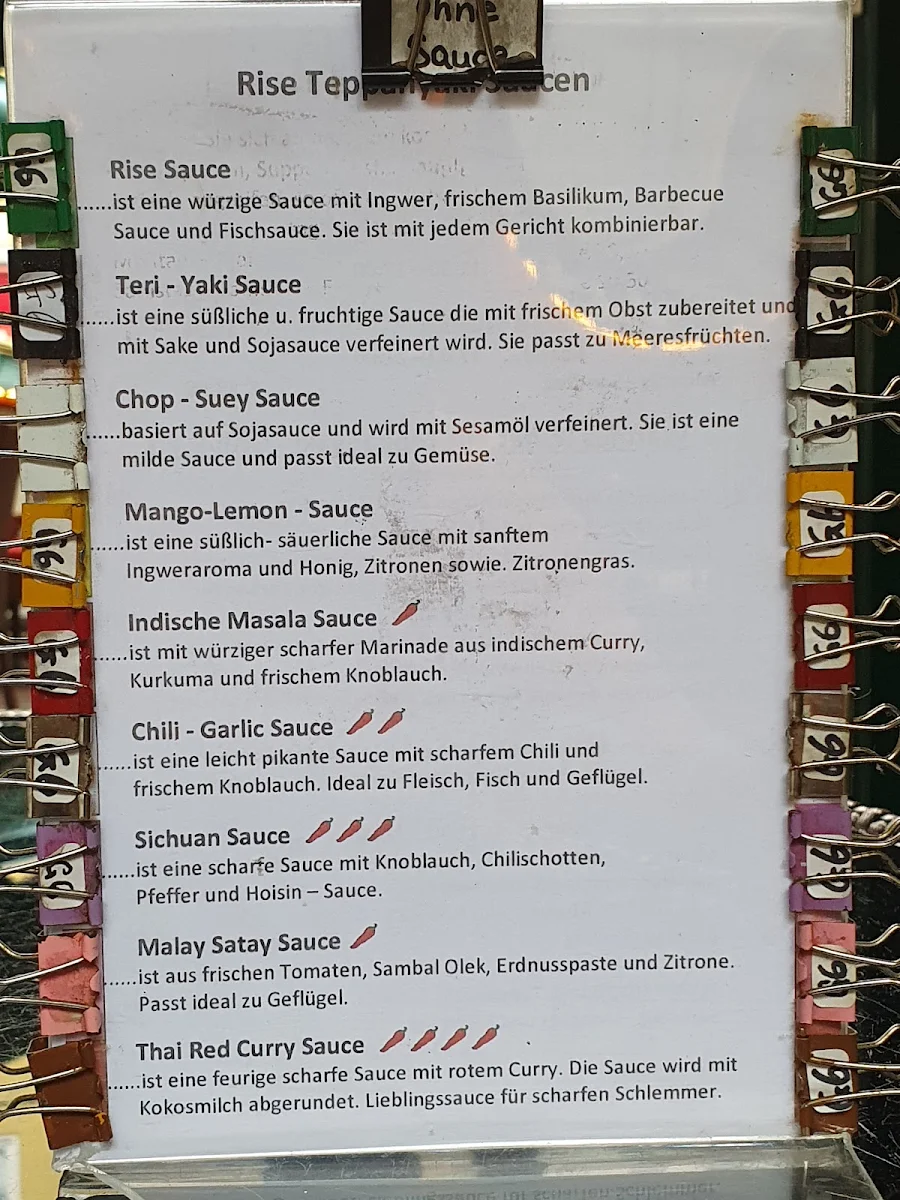 Ohne
Sauce
Rise Teppanyaki Saucen
Rise Sauce
......ist eine würzige Sauce mit Ingwer, frischem Basilikum, Barbecue
Sauce und Fischsauce. Sie ist mit jedem Gericht kombinierbar.
Teri - Yaki Sauce
......ist eine süßliche u. fruchtige Sauce die mit frischem Obst zubereitet und
mit Sake und Sojasauce verfeinert wird. Sie passt zu Meeresfrüchten.
Chop - Suey Sauce
......basiert auf Sojasauce und wird mit Sesamöl verfeinert. Sie ist eine
milde Sauce und passt ideal zu Gemüse.
Mango-Lemon - Sauce
......ist eine süßlich- säuerliche Sauce mit sanftem
Ingweraroma und Honig, Zitronen sowie. Zitronengras.
Indische Masala Sauce
......ist mit würziger scharfer Marinade aus indischem Curry,
Kurkuma und frischem Knoblauch.
Chili - Garlic Sauce
......ist eine leicht pikante Sauce mit scharfem Chili und
frischem Knoblauch. Ideal zu Fleisch, Fisch und Geflügel.
Sichuan Sauce
......ist eine scharfe Sauce mit Knoblauch, Chilischotten,
Pfeffer und Hoisin – Sauce.
Malay Satay Sauce
......ist aus frischen Tomaten, Sambal Olek, Erdnusspaste und Zitrone.
Passt ideal zu Geflügel.
Thai Red Curry Sauce
......ist eine feurige scharfe Sauce mit rotem Curry. Die Sauce wird mit
Kokosmilch abgerundet. Lieblingssauce für scharfen Schlemmer.